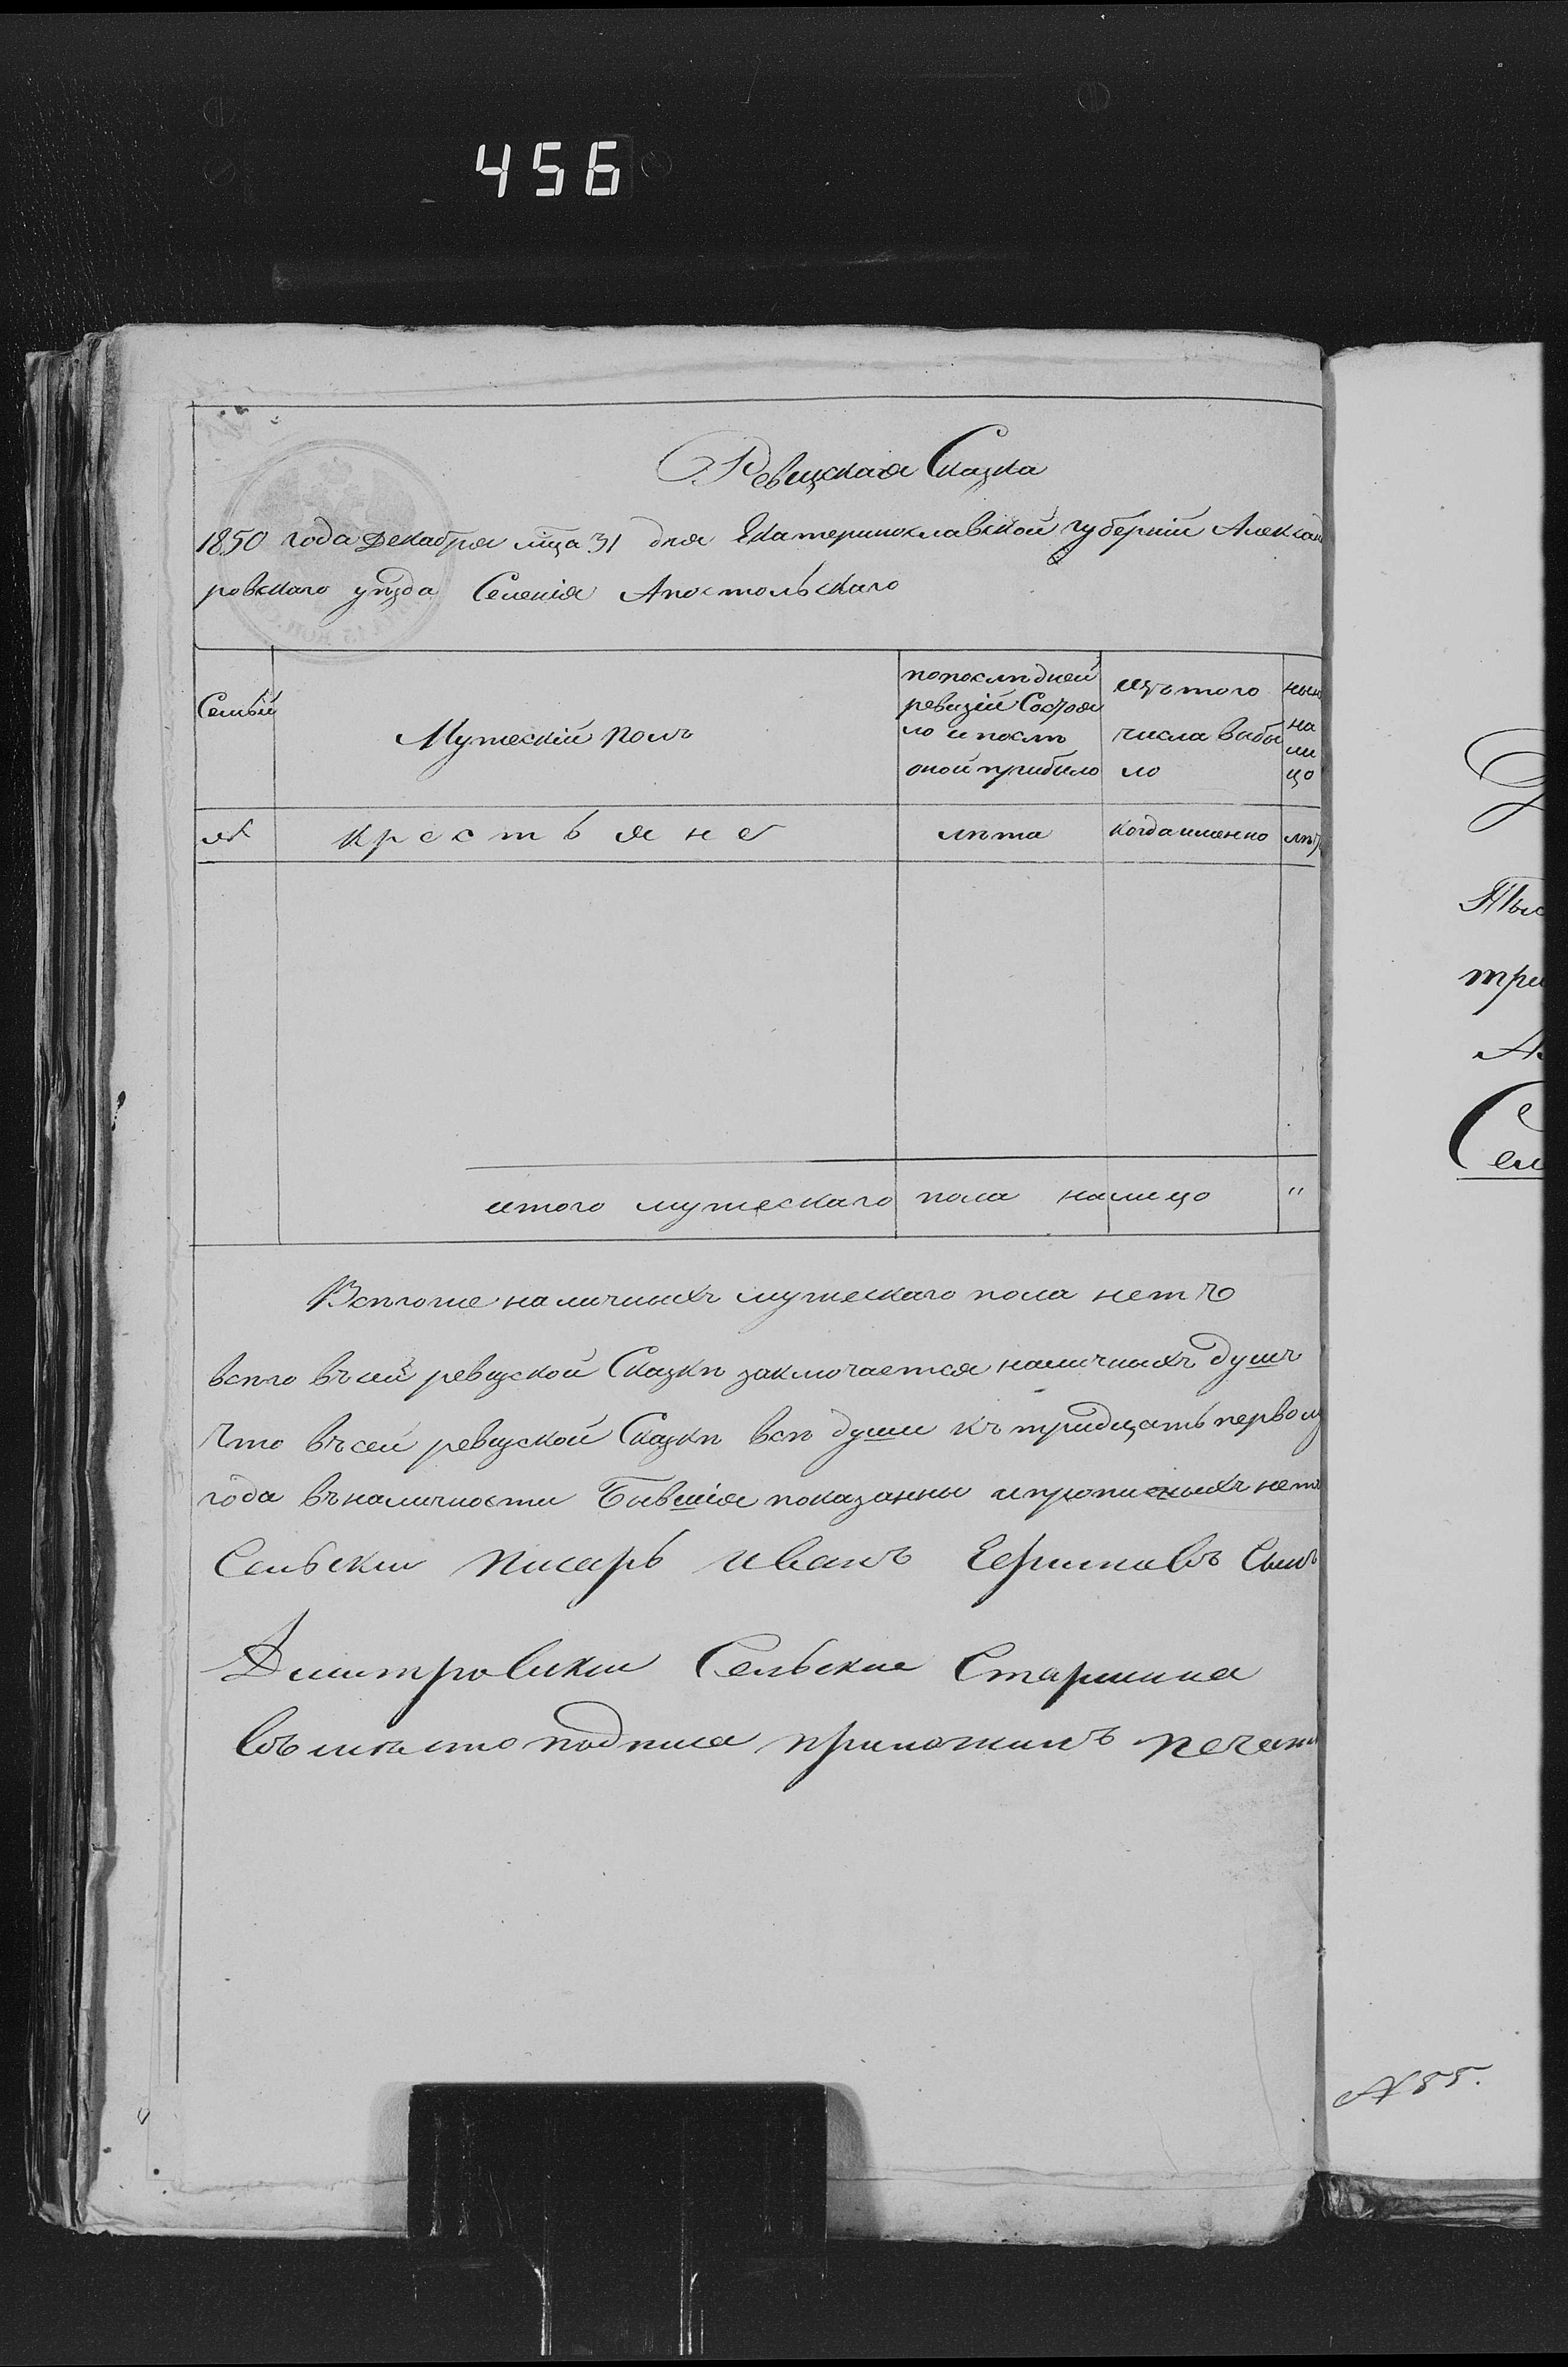 456
Ревизская Сказка
1850 года Декабря мца 31 дня Екатеринославской губернiи Алексан
ровскаго уѣзда Селенiя Апостольскаго
Семьи
Мужескiй полъ
попослѣдней
ревизiи Состоя
ло и послѣ
оной прибыло
изътого
числа выбы
ло
нынѣ
на
ли
цо
№
крестьяне
лѣта
когда именно
лѣт
итого мужескаго пола налицо "
Всѣгоже наличныхъ мужескаго пола нетъ
всѣго въсей ревизской Сказкѣ заключается наличныхъ душъ
Что въсей ревизской Сказкѣ всѣ души къ тридцать первому
года въналичности Бывшiя показанны ипрописныхъ нетъ
Сельскии писарь иванъ Ефимивъ Сынъ
Димитровскии Сельскии Старшина
въместо подписи приложилъ печать
Тыс
три
Ал
Сел
№ 55.